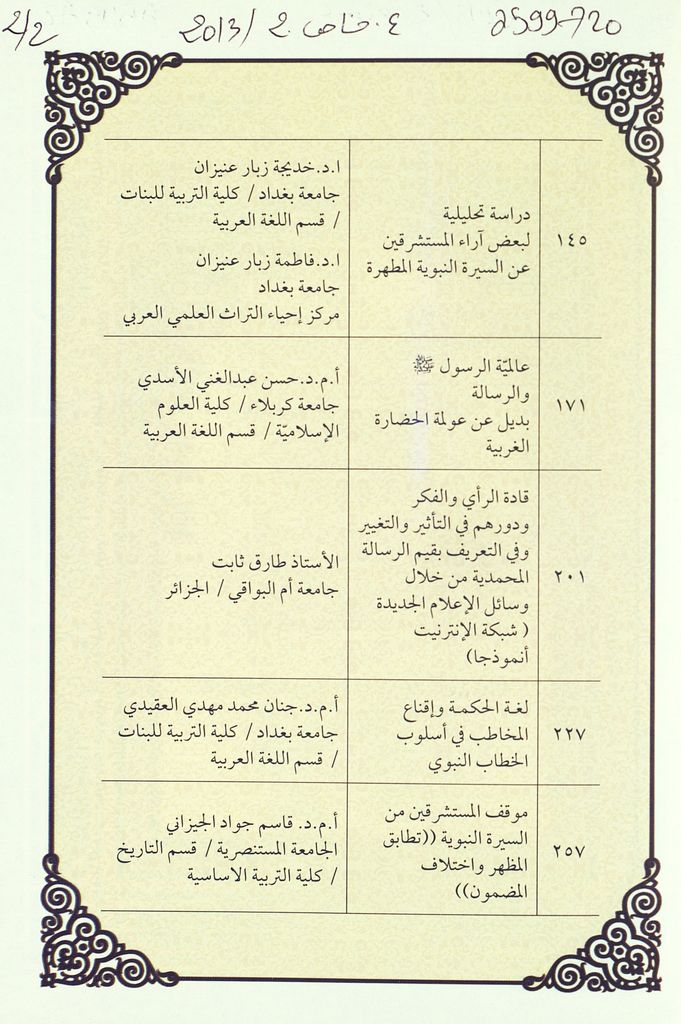 2/2
٤. خاص. 2 /2013
2599-720
١٤٥
دراسة تحليلية
لبعض آراء المستشرقين
عن السيرة النبوية المطهرة
ا.د.خديجة زبار عنيزان
جامعة بغداد / كلية التربية للبنات
/ قسم اللغة العربية
ا.د.فاطمة زبار عنيزان
جامعة بغداد
مركز إحياء التراث العلمي العربي
١٧١
عالميّة الرسول ﷺ
والرسالة
بديل عن عولمة الحضارة
الغربية
أ.م.د.حسن عبدالغني الأسدي
جامعة كربلاء / كلية العلوم
الإسلاميّة / قسم اللغة العربية
٢٠١
قادة الرأي والفكر
ودورهم في التأثير والتغيير
وفي التعريف بقيم الرسالة
المحمدية من خلال
وسائل الإعلام الجديدة
( شبكة الإنترنيت
أنموذجا)
الأستاذ طارق ثابت
جامعة أم البواقي / الجزائر
٢٢٧
لغة الحكمة وإقناع
المخاطب في أسلوب
الخطاب النبوي
أ.م.د.جنان محمد مهدي العقيدي
جامعة بغداد / كلية التربية للبنات
/ قسم اللغة العربية
٢٥٧
موقف المستشرقين من
السيرة النبوية ((تطابق
المظهر واختلاف
المضمون))
أ.م.د. قاسم جواد الجيزاني
الجامعة المستنصرية / قسم التاريخ
/ كلية التربية الاساسية